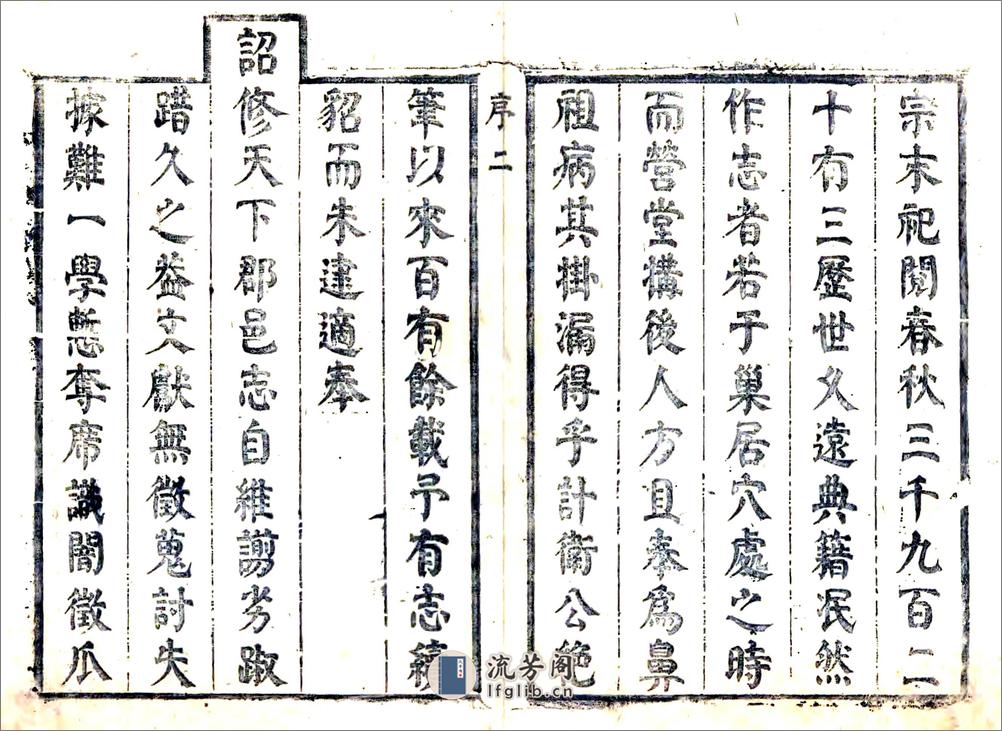 宗末祀閱春秋三千九百二
十有三歷世久遠典籍泯然
作志者若于巢居穴處之時
而營堂構後人方且奉為鼻
祖病其掛漏得乎計衛公絶
序 二
筆以來百有餘載予有志續
貂而未逮適奉
詔修天下郡邑志自維謭劣踧
踖久之葢文獻無徵蒐討失
據難一學慙奪席識闇徵瓜
流芳阁
lfglib.cn